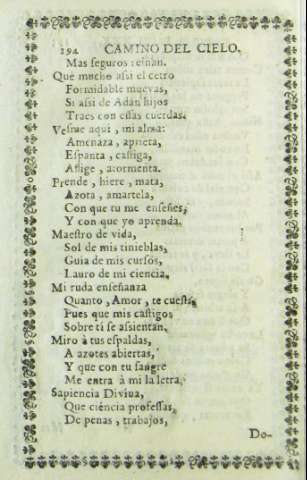 194 CAMINO DEL CIELO.
Mas seguros reinan.
Que mucho assi el cetro
Formidable muevas,
Si assi de Adan hijos
Traes con essas cuerdas.
Vesme aqui, mi alma:
Amenaza, aprieta,
Espanta, castiga,
Aflige, atormenta.
Prende, hiere, mata,
Azota, amartela,
Con que tu me enseñes,
Y con que yo aprenda.
Maestro de vida,
Sol de mis tinieblas,
Guia de mis cursos,
Lauro de mi ciencia.
Mi ruda enseñanza
Quanto, Amor, te cuesta,
Pues que mis castigos
Sobre ti se assientan.
Miro à tus espaldas,
A azotes abiertas,
Y que con tu sangre
Me entra à mi la letra.
Sapiencia Divina,
Que ciencia professas,
De penas, trabajos,
Do-